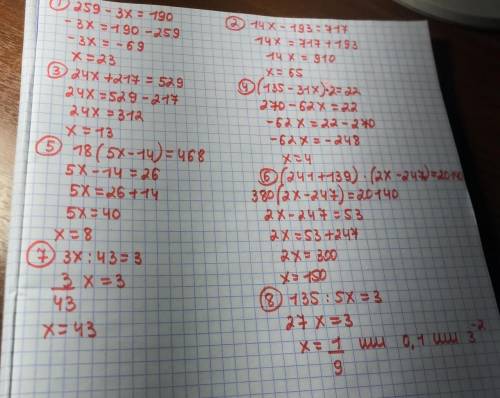 ① 259 - 3x = 190
-3x = 190 - 259
-3x = -69
x = 23
② 14x - 193 = 717
14x = 717 + 193
14x = 910
x = 65
③ 24x + 217 = 529
24x = 529 - 217
24x = 312
x = 13
④ (135 - 31x)·2 = 22
270 - 62x = 22
-62x = 22 - 270
-62x = -248
x = 4
⑤ 18(5x - 14) = 468
5x - 14 = 26
5x = 26 + 14
5x = 40
x = 8
⑥ (241 + 139)·(2x - 247) = 20140
380(2x - 247) = 20140
2x - 247 = 53
2x = 53 + 247
2x = 300
x = 150
⑦ 3x : 43 = 3
3/43 x = 3
x = 43
⑧ 135 : 5x = 3
27x = 3
x = 1/9 или 0,1 или 3⁻²